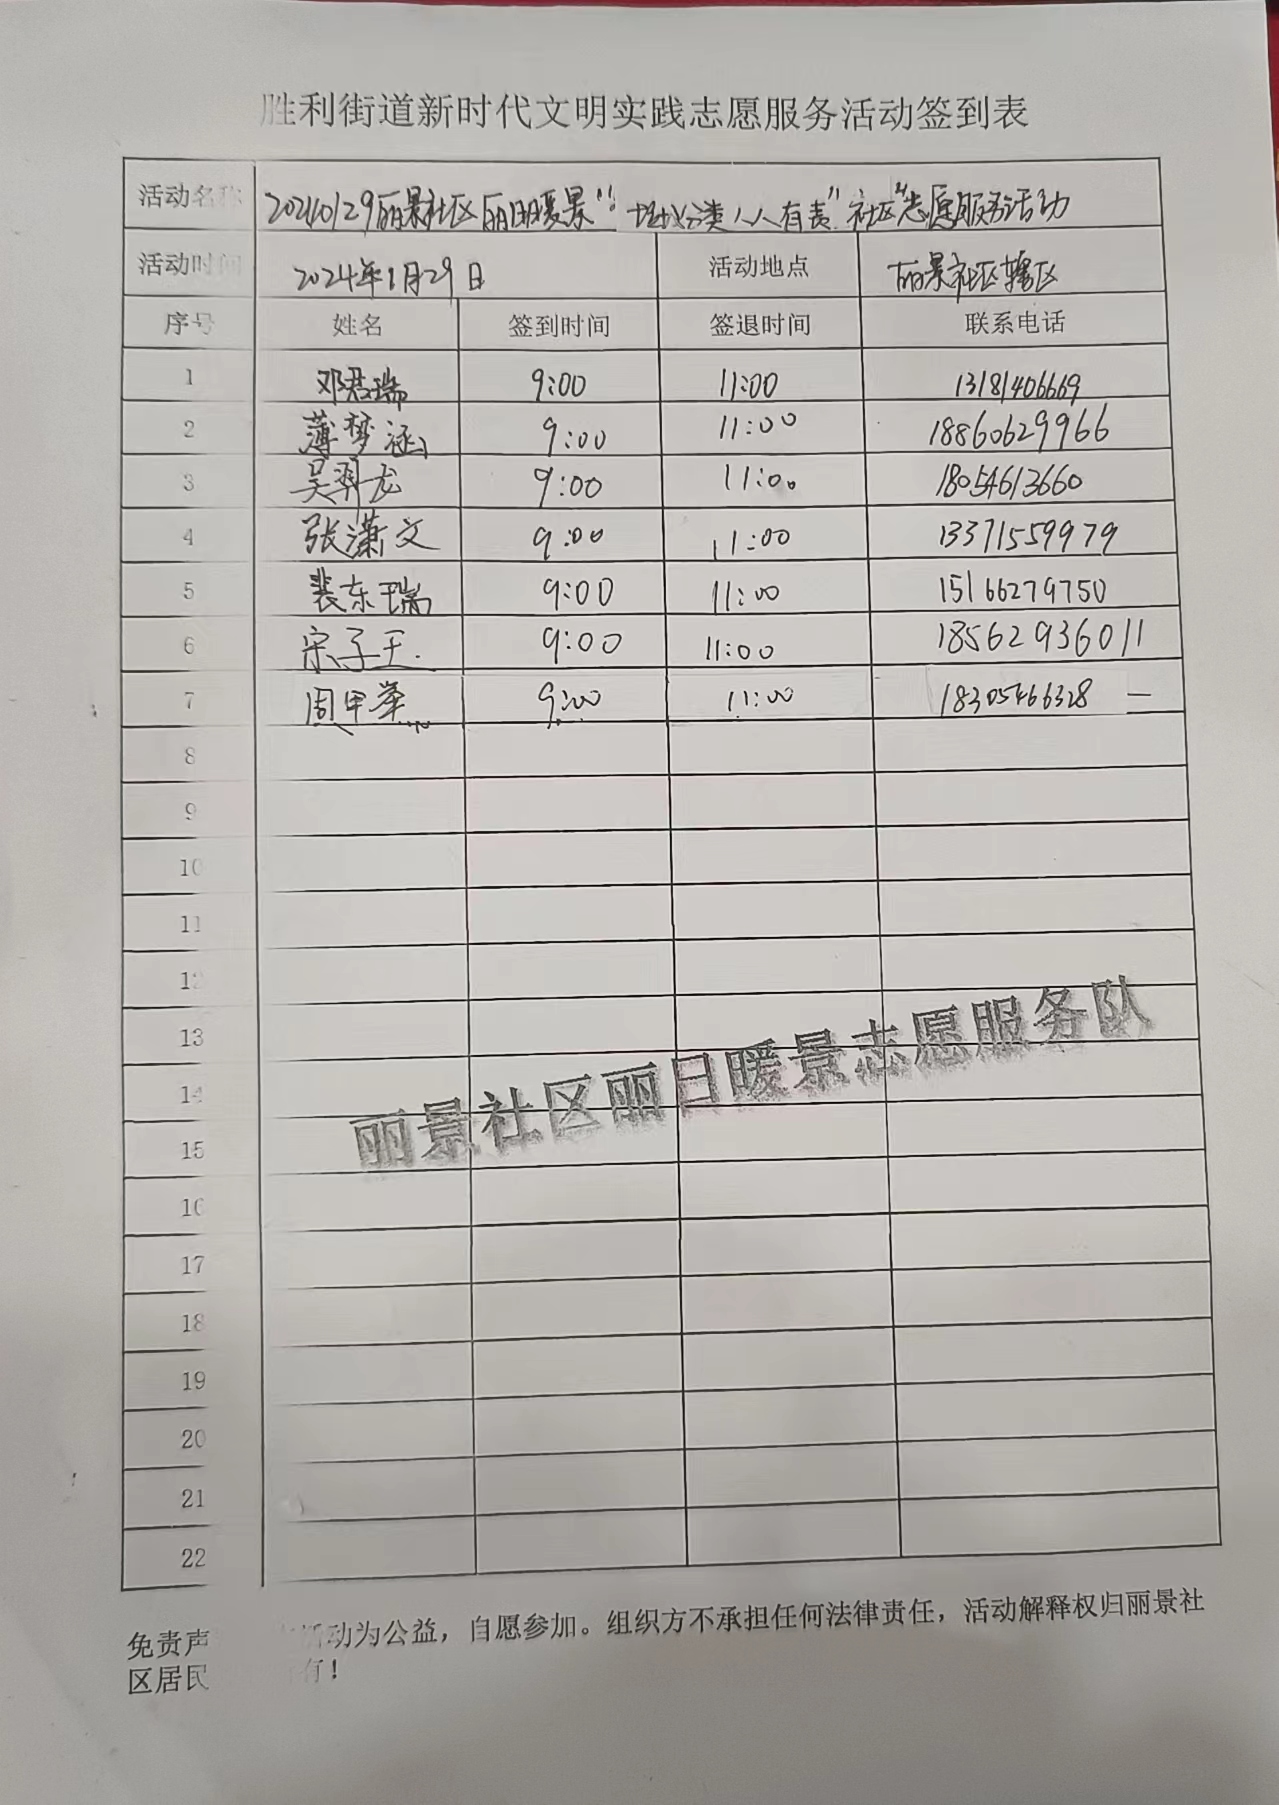 胜利街道新时代文明实践志愿服务活动签到表
活动名称 20240129丽景社区丽日暖景“垃圾分类人人有责”社区志愿服务活动
活动时间 2024年1月29日 活动地点 丽景社区辖区
序号 姓名 签到时间 签退时间 联系电话
1 邓君瑞 9:00 11:00 13181406669
2 薄梦涵 9:00 11:00 18860629966
3 吴羿龙 9:00 11:00 18054613660
4 张潇文 9:00 11:00 13371559979
5 裴东瑞 9:00 11:00 15166279750
6 宋子王 9:00 11:00 18562936011
7 周甲 9:00 11:00 18305466328
8
9
10
11
12
13
14
丽景社区丽日暖景志愿服务队
15
16
17
18
19
20
21
22
免责声 活动为公益，自愿参加。组织方不承担任何法律责任，活动解释权归丽景社
区居民 有！